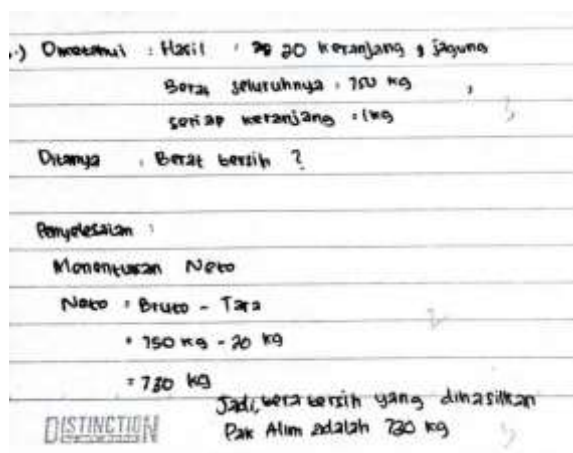 .) Diketahui : Hasil : 20 keranjang jagung
Berat seluruhnya : 750 kg
setiap keranjang : 1kg
Ditanya : Berat bersih ?
Penyelesaian :
Menentukan Neto
Neto : Bruto - Tara
= 750 kg - 20 kg
= 730 kg
Jadi, bera bersih yang dihasilkan
Pak Alim adalah 730 kg
DISTINCTION